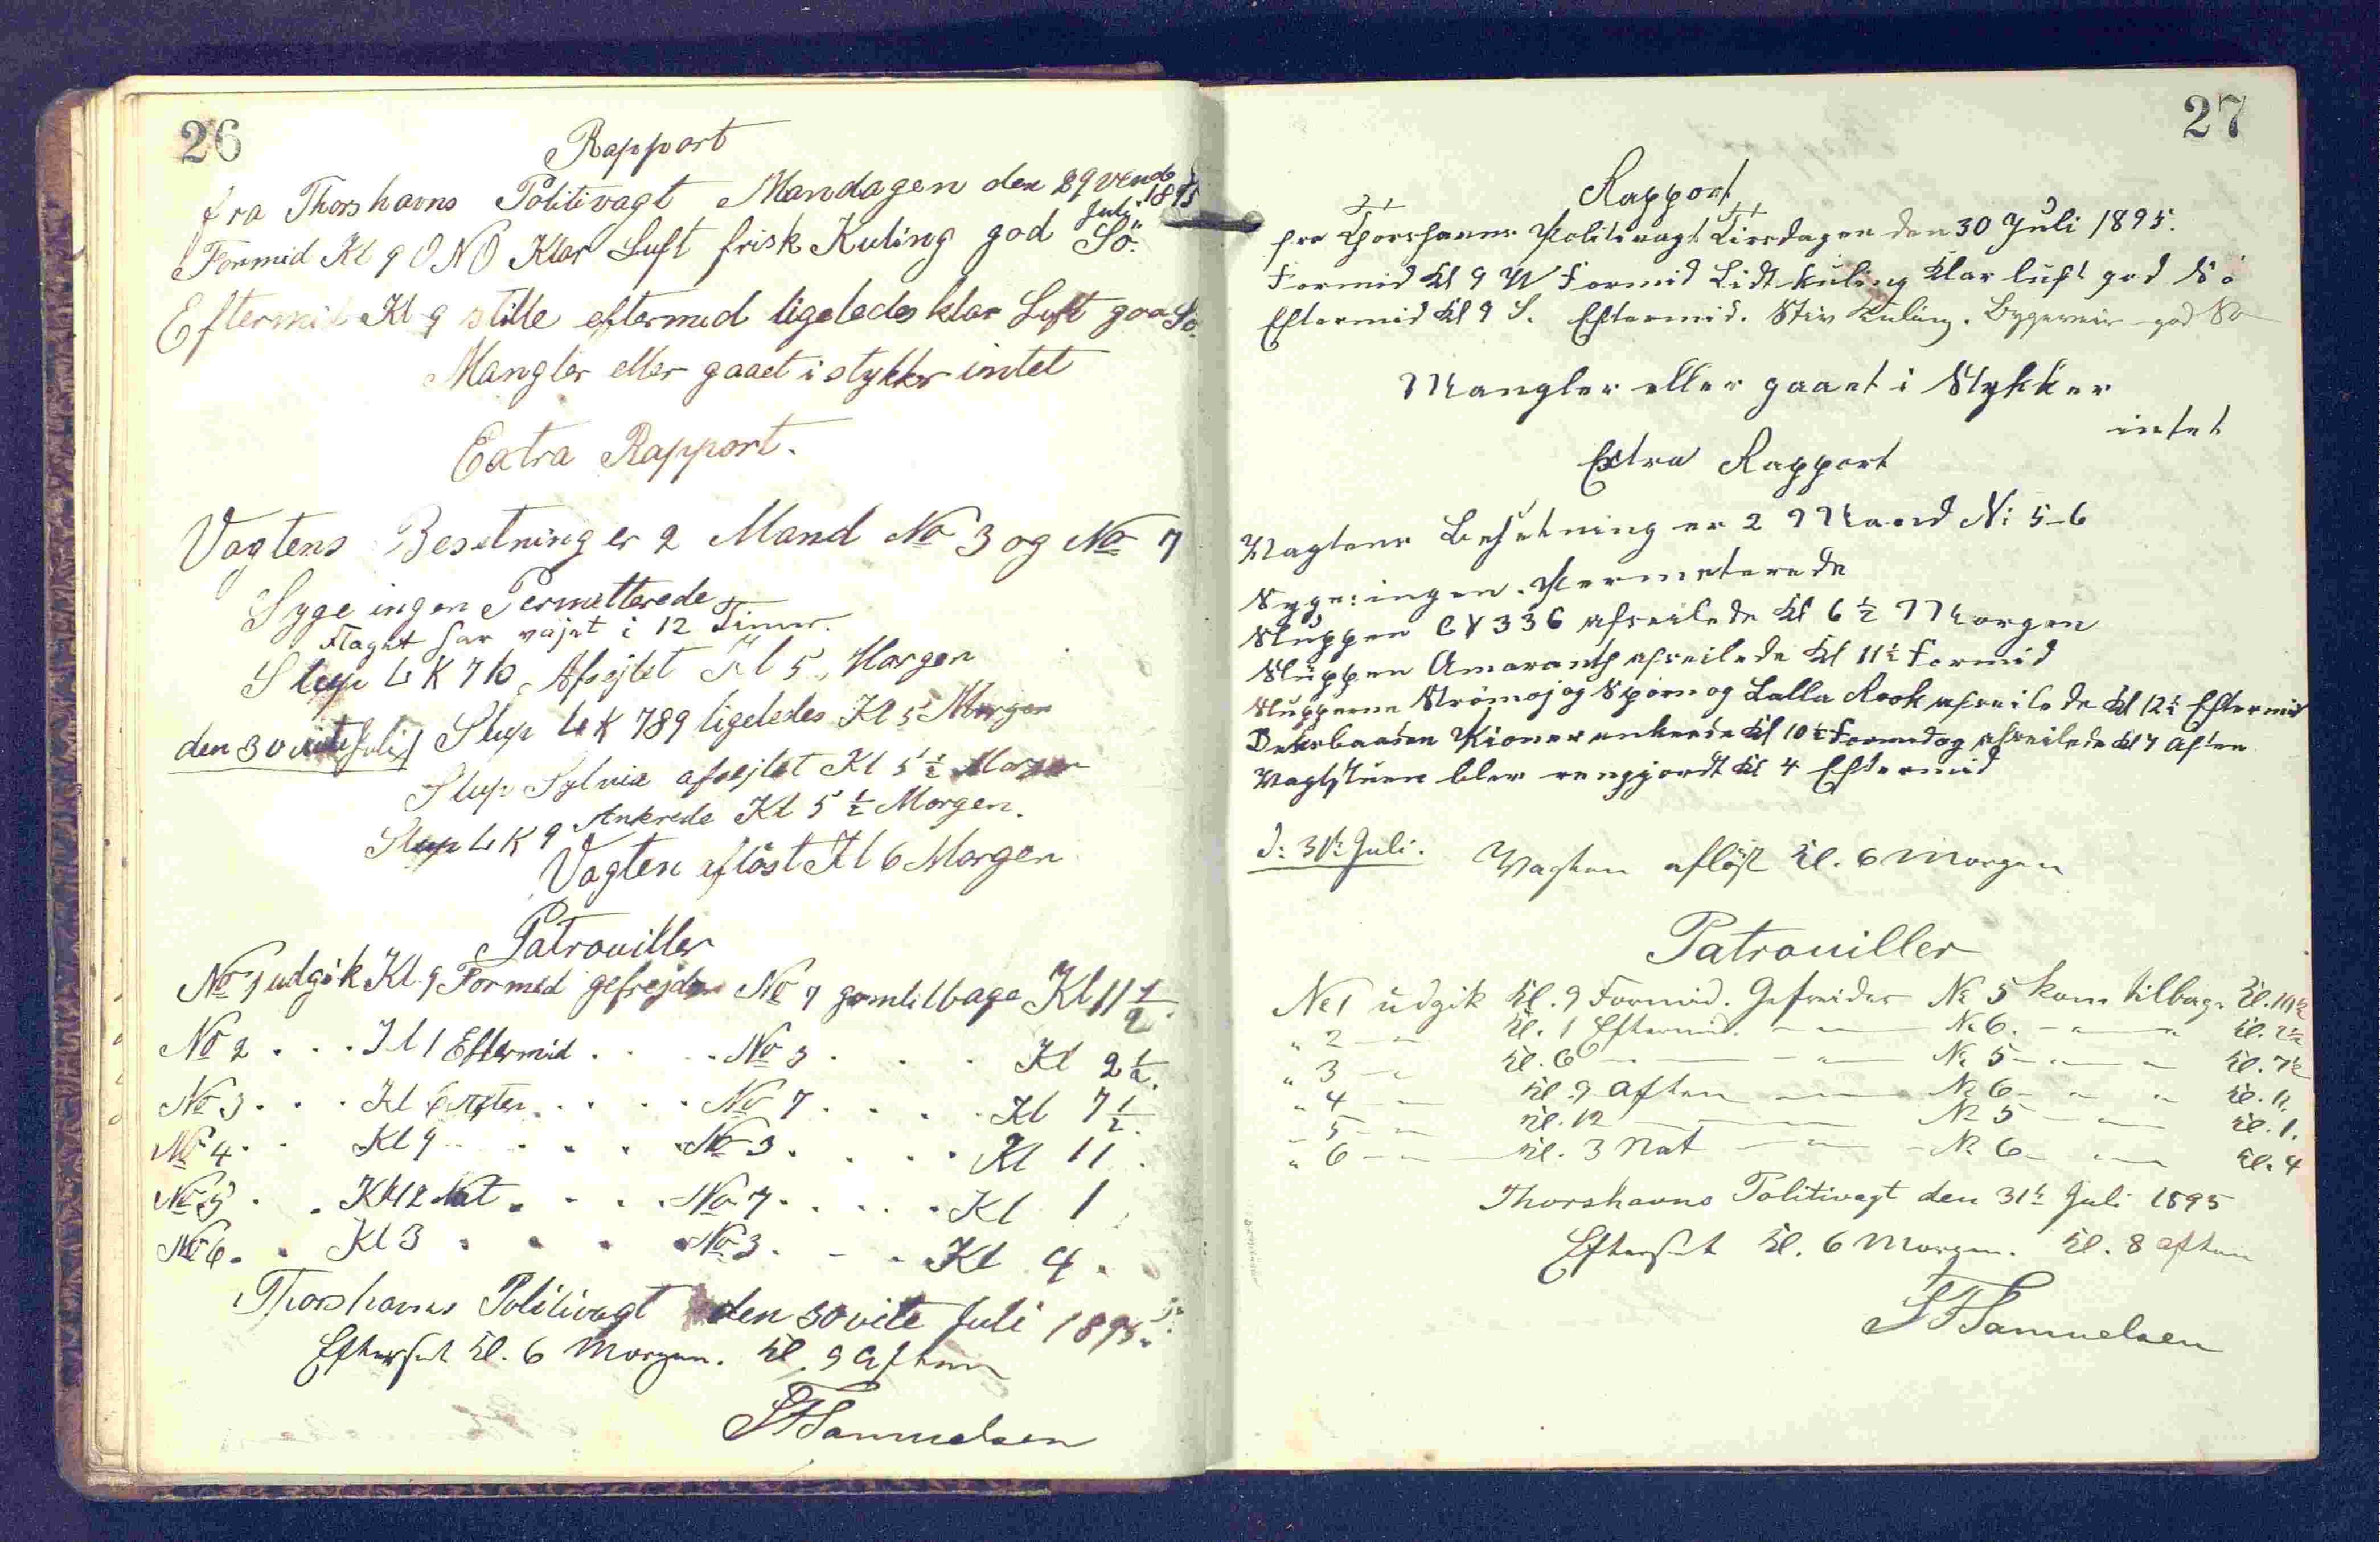 26
Rapport
fra Thorshavns Politivagt Mandagen den 29vende Juli 1895
Formid Kl 9 ONO Klar Luft frisk Kuling god Sö.
Eftermid Kl 9 stille eftermid ligeledes klar Luft god Sö.
Mangler eller gaaet i stykker intet
Extra Rapport.
Vagtens Besetning er 2 Mand No 3 og No 7
Syge ingen Permitterede
Flaget har vajet i 12 Timer.
Slup LK Afsejlet Kl 5, Morgen
den 30vite Juli Slup LK 789 ligeledes Kl 5 Morgen
Slup Sylvia afsejlet Kl 5 ½ Morgen
Slup LK 9 Ankrede Kl 5 ½ Morgen.
Vagten aflöst Kl 6 Morgen
Patrouiller
No 1 udgik Kl. 9 Formid gefrejder No 7 komtilbage Kl 11 ½.
No 2 . . . Kl 1 Eftermid . . . No 3 . . . Kl 2 ½.
No 3 . . . Kl 6 Aften . . . . No 7 . . . . Kl 7 ½.
No 4 . . Kl 9 . . . . No 3 . . . . Kl 11 .
No 5 . . Kl 12 Nat . . . . No 7 . . . . Kl 1
No 6 . . Kl 3 . . . . No 3 . . . Kl 4 .
Thorshavns Politivagt den 30vite Juli 1895.
Efterset Kl. 6 Morgen. Kl. 9 Aften
SFSamuelsen
27
Rapport
fra Thorshavns Politivagt Tirsdagen den 30 Juli 1895.
Formid Kl 9 W Formid Lidt kuling Klar luft god Sö
Eftermid Kl 9 S. Eftermid. Stiv Kuling. Bygeveir god Sö
Mangler eller gaaet i Stykker
intet
Extra Rapport
Vagtens Besetning er 2 Mand N: 5-6
Syge: ingen. Permeterede
Sluppen 336 afseilede Kl 6 ½ Morgen
Sluppen Amaranth afseilede Kl 11 ½ Formid
Slupperne Strömoj og Spörn og Lalla Rook afseilede Kl 12 ½ Eftermid
Deksbaaden Pioner ankrede Kl 10 ½ Formid og afseilede Kl 7 Aften
Vagtstuen blev rengjordt Kl 4 Eftermid
d: 31t: Juli. Vagten aflöst Kl. 6 Morgen
Patrouiller
No 1 udgik Kl. 9 Formid. Gefreider No 5 kom tilbage Kl. 10½
" 2 - " Kl. 1 Eftermid. - " - No 6. - " - " Kl. 2½
" 3 - " Kl. 6 - " - No 5 - " - " Kl. 7½
" 4 - " Kl. 9 Aften - " - No 6 - " - " Kl. 11.
" 5 - " Kl. 12 - " - No 5 - " - Kl. 1.
" 6 - " Kl. 3 Nat - " - No 6 - " - Kl. 4
Thorshavns Politivagt den 31t Juli 1895
Efterset Kl. 6 Morgen. Kl. 8 Aften
SFSamuelsen